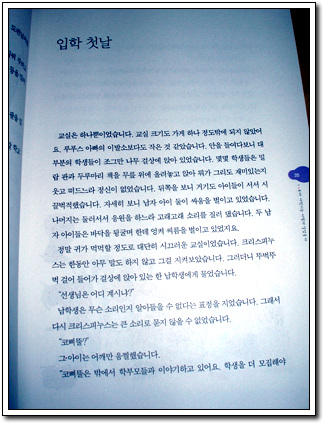 입학 첫날
교실은 하나뿐이었습니다. 교실 크기도 가게 하나 정도밖에 되지 않았어
요. 루푸스 아빠의 이발소보다도 작은 것 같았습니다. 안을 들여다보니 대
부분의 학생들이 조그만 나무 걸상에 앉아 있었습니다. 몇몇 학생들은 밀
랍 판과 두루마리 책을 무릎 위에 올려놓고 앉아 뭐가 그리도 재미있는지
웃고 떠드느라 정신이 없었습니다. 뒤쪽을 보니 거기도 아이들이 서서 시
끌벅적했습니다. 자세히 보니 남자 아이 둘이 싸움을 벌이고 있었습니다.
나머지는 둘러서서 응원을 하느라 고래고래 소리를 질러 댔습니다. 두 남
자 아이들은 바닥을 뒹굴며 한데 엉켜 씨름을 벌이고 있었지요.
정말 귀가 먹먹할 정도로 대단히 시끄러운 교실이었습니다. 크리스피누
스는 한동안 아무 말도 하지 않고 그걸 지켜보았습니다. 그러더니 뚜벅뚜
벅 걸어 들어가 걸상에 앉아 있는 한 남학생에게 물었습니다.
"선생님은 어디 계시냐?"
남학생은 무슨 소리인지 알아들을 수 없다는 표정을 지었습니다. 그래서
다시 크리스피누스는 큰 소리로 묻지 않을 수 없었습니다.
"코삐뚤?"
그 아이는 어깨만 움찔했습니다.
"코삐뚤은 밖에서 학부모들과 이야기하고 있어요. 학생을 더 모집해야